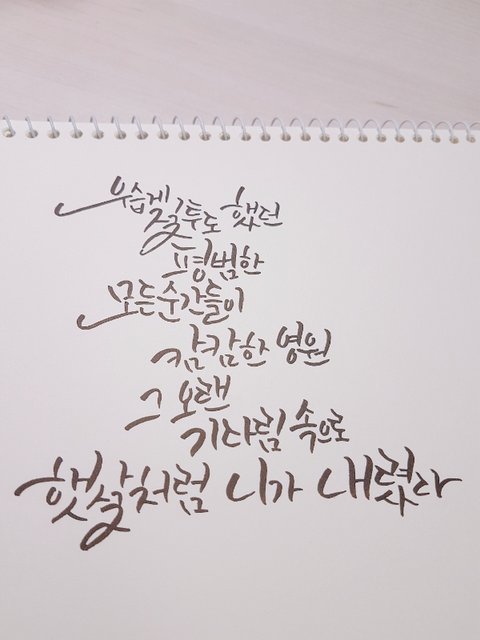 우습게 질투도 했던
평범한
모든순간들이
캄캄한 영원
그 오랜
기다림 속으로
햇살처럼 니가 내렸다